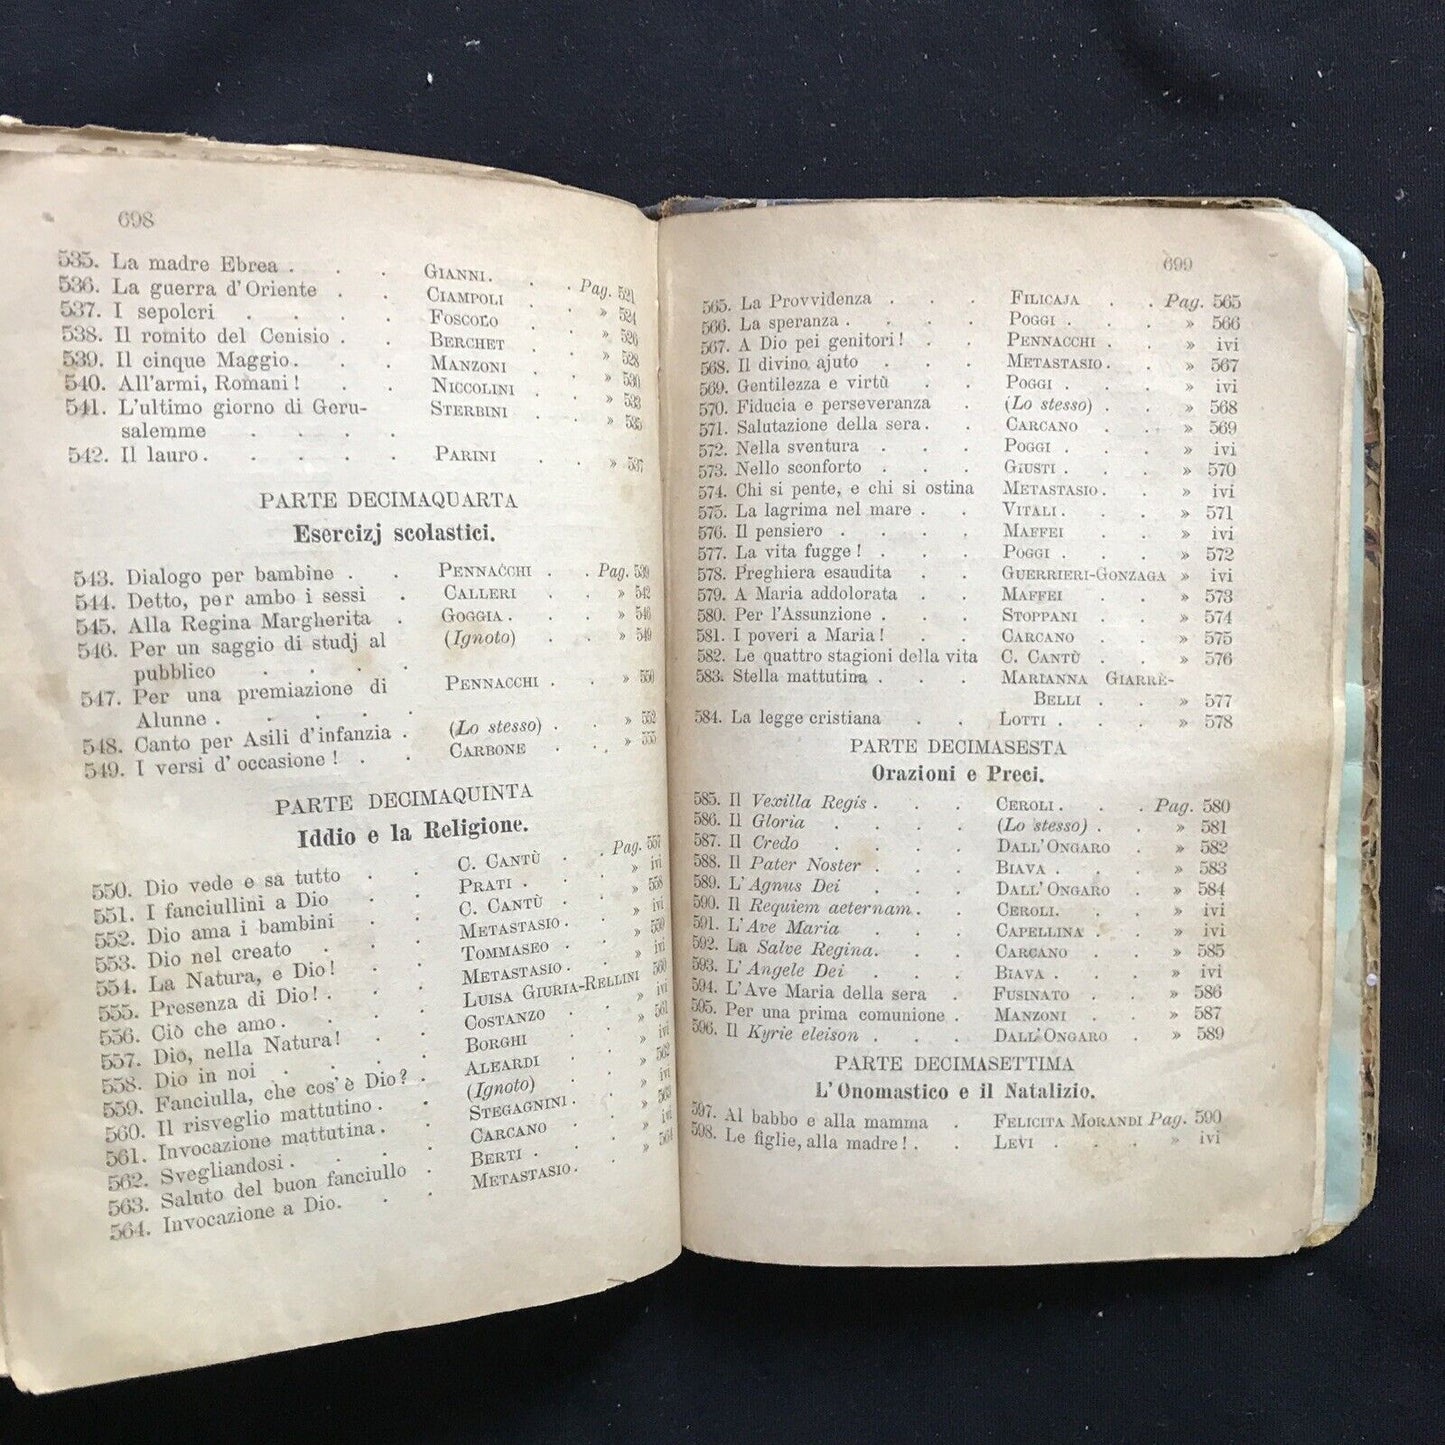 698
535. La madre Ebrea . . . GIANNI. . . Pag. 521
536. La guerra d'Oriente . . CIAMPOLI . . » 524
537. I sepolcri . . . . FOSCOLO . . » 526
538. Il romito del Cenisio . . BERCHET . . » 528
539. Il cinque Maggio. . . MANZONI . . » 530
540. All'armi, Romani! . . NICCOLINI . . » 533
541. L'ultimo giorno di Geru- STERBINI . . » 535
salemme . . . .
542. Il lauro. . . . . PARINI . . » 537
PARTE DECIMAQUARTA
Esercizj scolastici.
543. Dialogo per bambine . . PENNACCHI . . Pag. 539
544. Detto, per ambo i sessi . CALLERI . . » 542
545. Alla Regina Margherita . GOGGIA. . . » 546
546. Per un saggio di studj al (Ignoto) . . » 549
pubblico . . . .
547. Per una premiazione di PENNACCHI . . » 550
Alunne . . . . .
548. Canto per Asili d'infanzia . (Lo stesso) . . » 552
549. I versi d'occasione! . . CARBONE . . » 555
PARTE DECIMAQUINTA
Iddio e la Religione.
550. Dio vede e sa tutto . . C. CANTÙ . . Pag. 557
551. I fanciullini a Dio . . PRATI . . . » ivi
552. Dio ama i bambini . . C. CANTÙ . . » 558
553. Dio nel creato . . METASTASIO . . » ivi
554. La Natura, e Dio! . . TOMMASEO . . » 559
555. Presenza di Dio! . . . METASTASIO. . » ivi
556. Ciò che amo. . . . LUISA GIURIA-RELLINI 560
557. Dio, nella Natura! . . COSTANZO . . » ivi
558. Dio in noi . . . . BORGHI . . » 561
559. Fanciulla, che cos'è Dio? . ALEARDI . . » ivi
560. Il risveglio mattutino . . (Ignoto) . . » 562
561. Invocazione mattutina. . STEGAGNINI. . » ivi
562. Svegliandosi . . . . CARCANO . . » 563
563. Saluto del buon fanciullo . BERTI . . . » ivi
564. Invocazione a Dio. . . METASTASIO. . » 564
699
565. La Provvidenza . . . FILICAJA . . Pag. 565
566. La speranza . . . . POGGI . . . » 566
567. A Dio pei genitori! . . PENNACCHI . . » ivi
568. Il divino ajuto . . . METASTASIO. . » 567
569. Gentilezza e virtù . . POGGI . . . » ivi
570. Fiducia e perseveranza . (Lo stesso) . . » 568
571. Salutazione della sera . . CARCANO . . » 569
572. Nella sventura . . . POGGI . . . » ivi
573. Nello sconforto . . . GIUSTI . . . » 570
574. Chi si pente, e chi si ostina METASTASIO. . » ivi
575. La lagrima nel mare . . VITALI. . . » 571
576. Il pensiero . . . . MAFFEI . . » ivi
577. La vita fugge! . . . POGGI . . . » 572
578. Preghiera esaudita . . GUERRIERI-GONZAGA » ivi
579. A Maria addolorata . . MAFFEI . . » 573
580. Per l'Assunzione . . . STOPPANI . . » 574
581. I poveri a Maria! . . CARCANO . . » 575
582. Le quattro stagioni della vita C. CANTÙ . . » 576
583. Stella mattutina . . . MARIANNA GIARRÈ-
BELLI . . » 577
584. La legge cristiana . . LOTTI . . . » 578
PARTE DECIMASESTA
Orazioni e Preci.
585. Il Vexilla Regis . . . CEROLI . . . Pag. 580
586. Il Gloria . . . . (Lo stesso) . . » 581
587. Il Credo . . . . DALL'ONGARO . » 582
588. Il Pater Noster . . . BIAVA . . . » 583
589. L'Agnus Dei . . . DALL'ONGARO . » 584
590. Il Requiem aeternam. . . CEROLI. . . » ivi
591. L'Ave Maria . . . CAPELLINA . . » ivi
592. La Salve Regina. . . CARCANO . . » 585
593. L'Angele Dei . . . BIAVA . . . » ivi
594. L'Ave Maria della sera . FUSINATO . . » 586
595. Per una prima comunione . MANZONI . . » 587
596. Il Kyrie eleison . . . DALL'ONGARO . » 589
PARTE DECIMASETTIMA
L'Onomastico e il Natalizio.
597. Al babbo e alla mamma . FELICITA MORANDI Pag. 590
598. Le figlie, alla madre! . . LEVI . . . » ivi